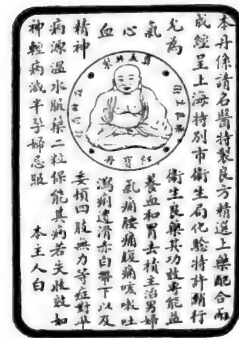 本丹係請名醫特製良方精選上藥配合而
成經呈上海特別市衛生局化驗特許頒行
允為衛生良藥其功效專能益
氣養血和胃去積主治男婦
心氣痛腰痛腹痛咳嗽吐
血瀉痢遺滑赤白帶下以及
精神委頓四肢無力等症對早
病源温水服藥二粒保能其病若失收效如
神輕病減半孕婦忌服 本主人白
紅寶丹